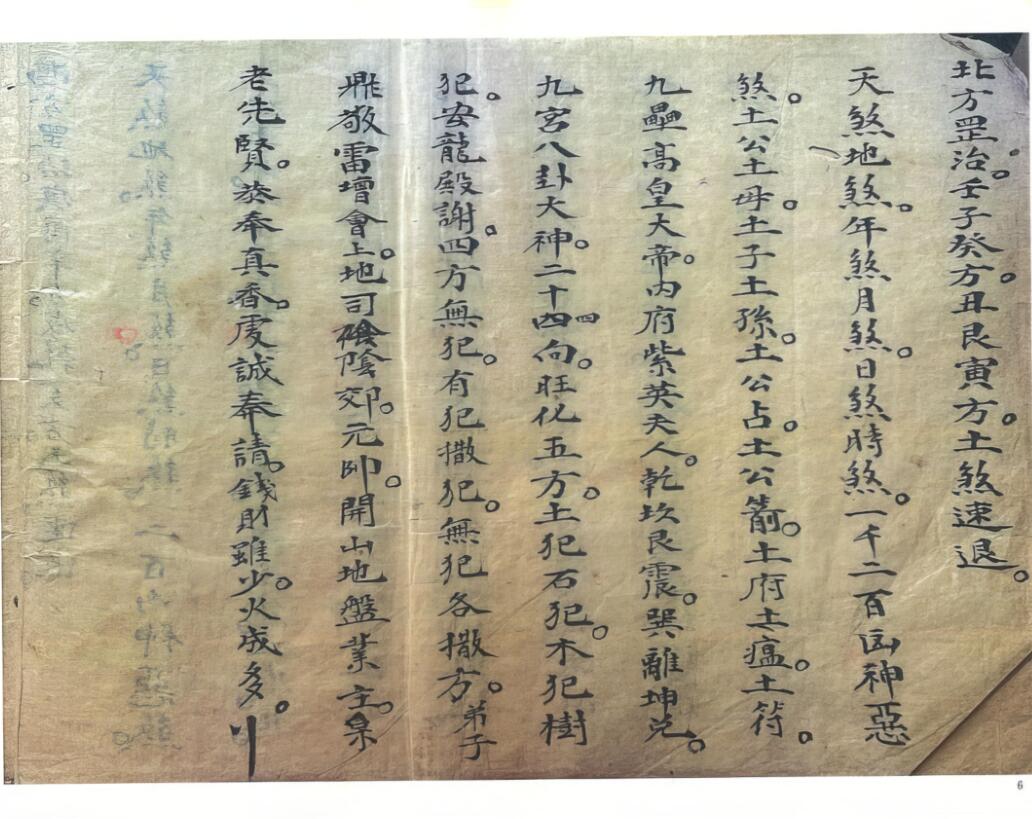 北方罡治。壬子癸方。丑艮寅方。土煞速退。
天煞地煞。年煞月煞。日煞時煞。一千二百凶神惡
煞。土公土母。土子土孫。土公占。土公箭。土府土瘟。土符。
九壘高皇大帝。内府紫英夫人。乾坎艮震。巽離坤兑。
九宮八卦大神。二十四四向。旺化五方。土犯石犯。木犯樹
犯。安龍殿謝。四方無犯。有犯撒犯。無犯各撒方。弟子
鼎敬雷增會上。地司陰郊。元帅。開山地盤業主。泉
老先賢。恭奉真香。虔誠奉請。錢財雖少。火成多。
6